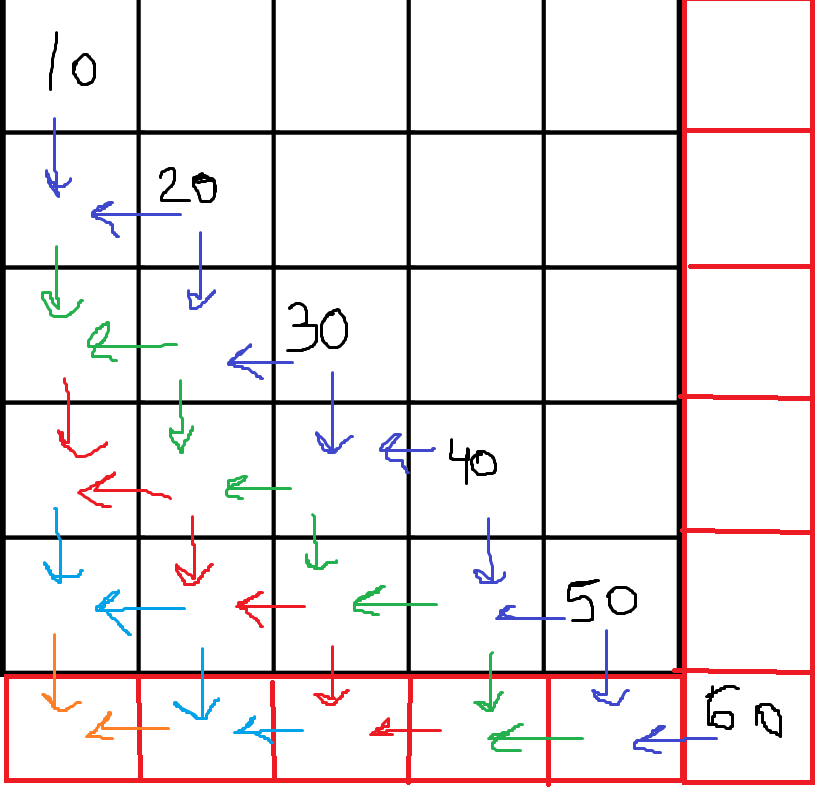 10
20
30
40
50
60